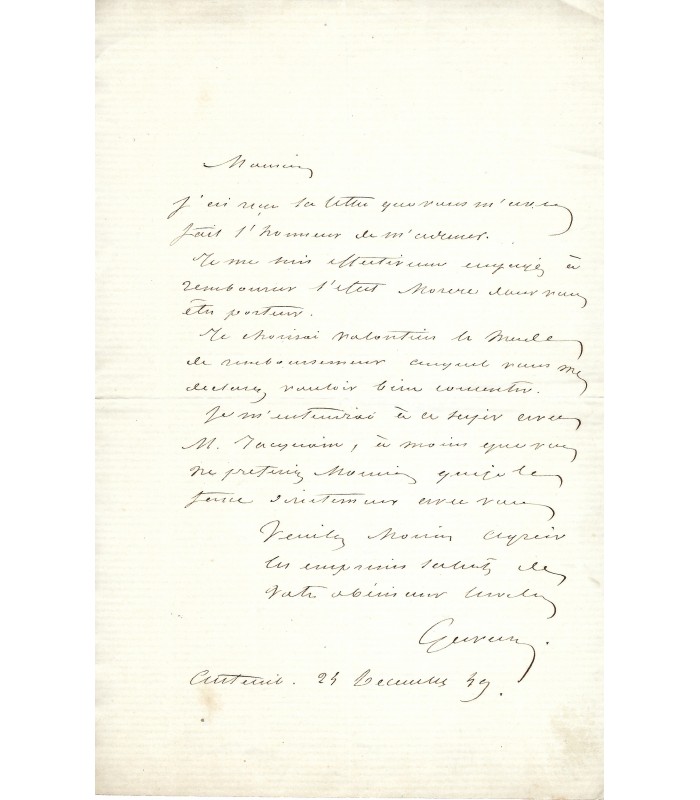 Monsieur
J'ai reçu la lettre que vous m'avez
fait l'honneur de m'adresser.
Je me suis effectivement engagé à
rembourser l'effet dont vous
êtes porteur.
Je choisirai volontiers le mode
de remboursement auquel vous me
déclarez vouloir bien consentir.
Je m'entendrai à ce sujet avec
M. Jacquain, à moins que vous
ne préfériez Monsieur que je le
fasse directement avec vous
Veuillez Monsieur agréer
les empressés saluts de
votre obéissant serviteur
Auteuil. Décembre 49.